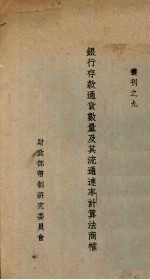 叢刊之九
銀行存款通貨數量及其流通速率計算法商榷
財政部幣制研究委員會